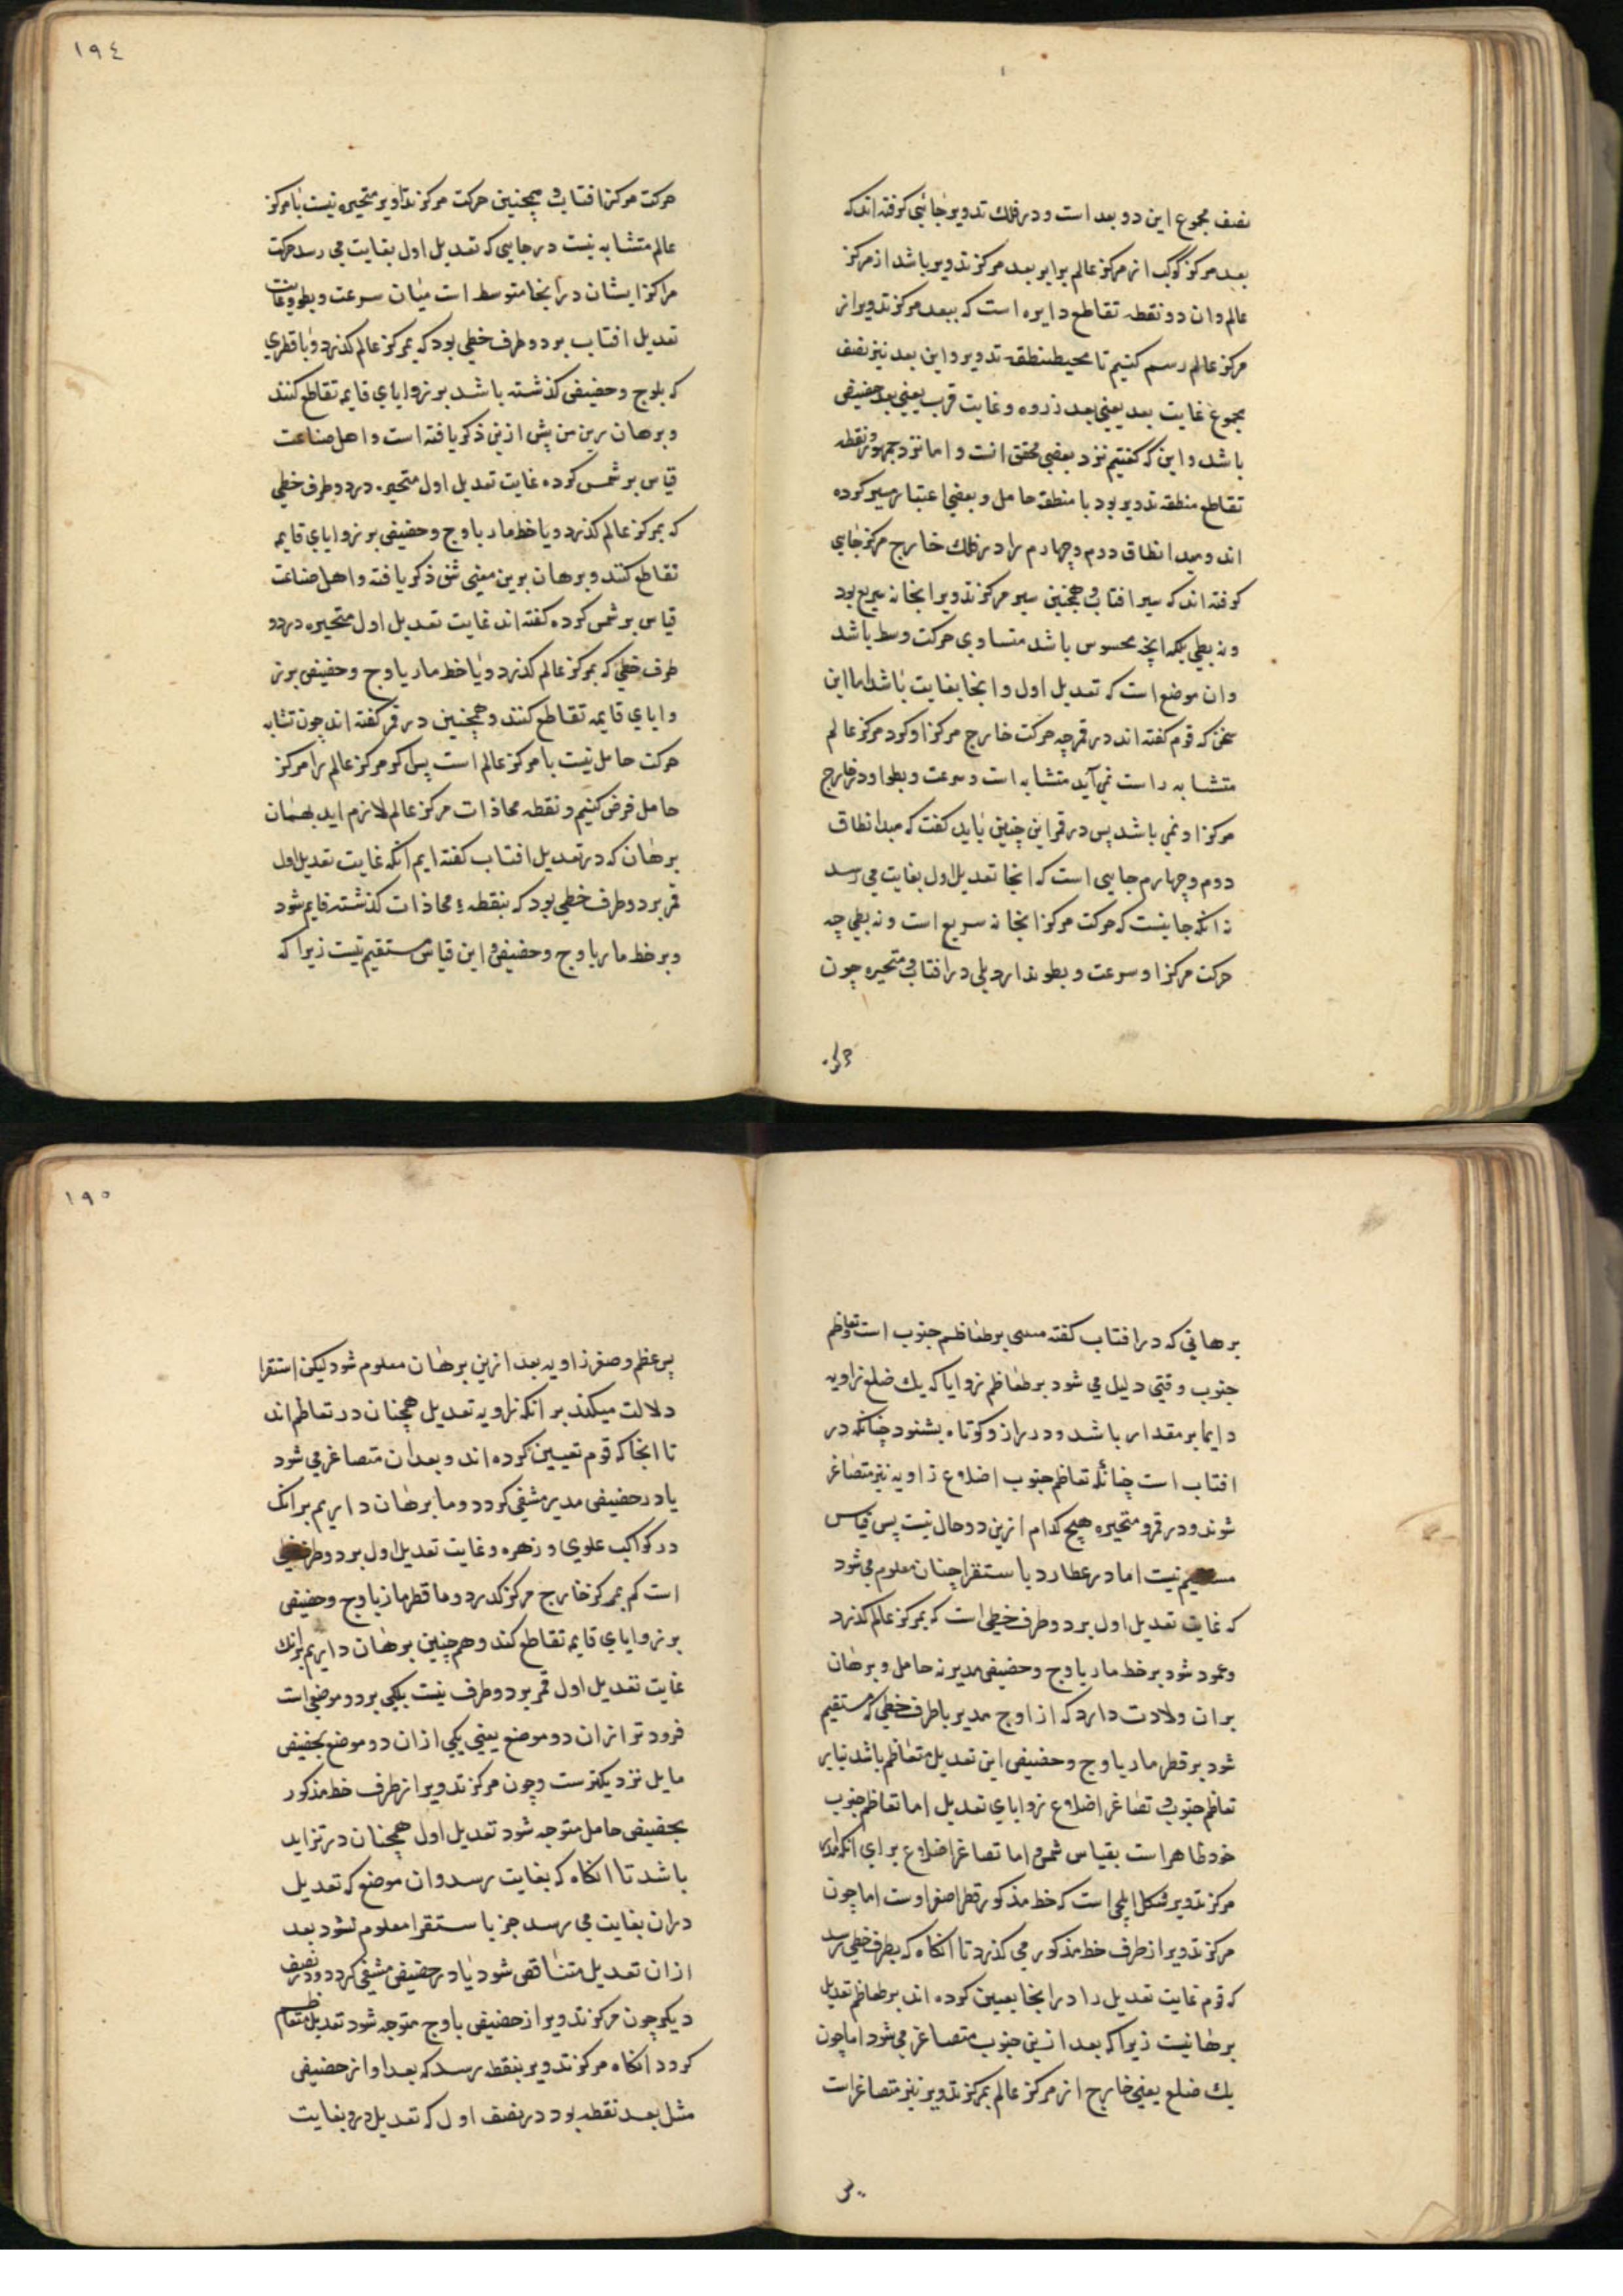 نصف مجموع این دو بعد است و در فلك تدویر جائی کرفته اند که
بعد مرکز کوکب از مرکز عالم برابر بعد مرکز تدویر باشد از مرکز
عالم و ان دو نقطه تقاطع دایره است که ببعد مرکز تدویر از
مرکز عالم رسم کنیم تا محیط منطقه تدویر و این بعد نیز نصف
مجموع غایت بعد یعنی بعد ذروه و غایت قرب یعنی بعد حضیض
باشد و این که کفتیم نزد بعضی محقق انست و اما نزد جمهور نقطه
تقاطع منطقه تدویر بود با منطقه حامل و بعضی اعتبار سیر کرده
اند و مبدا نطاق دوم و چهارم را در فلك خارج مرکز جایی
کوفته اند که سیر افتاب و همچنین سیر مرکز تدویر انجا نه سریع بود
و نه بطی بلکه انچه محسوس باشد متساوی حرکت وسط باشد
و ان موضع است که تعدیل اول و انجا بغایت باشد اما این
سخن که قوم کفته اند در قمر چه حرکت خارج مرکز او کرد مرکز عالم
متشابه راست نمی آید متشابه است و سرعت و بطو او در خارج
مرکز او نمی باشد پس در قمر این چنین باید کفت که مبدا نطاق
دوم و چهارم جایی است که انجا تعدیل اول بغایت می رسد
نه انکه جاییست که حرکت مرکز انجا نه سریع است و نه بطی چه
حرکت مرکز او سرعت و بطو ندارد بلی در افتاب و متحیره چون
حرکت
١٩٤
حرکت مرکز افتاب و همچنین حرکت مرکز تداویر متحیره نیست با مرکز
عالم متشابه نیست در جایی که تعدیل اول بغایت می رسد حرکت
مراکز ایشان در انجا متوسط است میان سرعت و بطو و غایت
تعدیل افتاب بر دو طرف خطی بود که بمرکز عالم کذرد و با قطری
که باوج و حضیض کذشته باشد بر زوایای قایمه تقاطع کنند
و برهان برین من پیش ازین ذکر یافته است و اهل صناعت
قیاس بر شمس کرده غایت تعدیل اول متحیره در دو طرف خطی
که بمرکز عالم کذرد و با خط مار باوج و حضیض بر زوایای قایمه
تقاطع کنند و برهان برین معنی شق ذکر یافته و اهل صناعت
قیاس بر شمس کرده کفته اند غایت تعدیل اول متحیره در دو
طرف خطی که بمرکز عالم کذرد و با خط مار باوج و حضیض بر ز
وایای قایمه تقاطع کنند و همچنین در قمر کفته اند چون تشابه
حرکت حامل نیست با مرکز عالم است پس کر مرکز عالم را مرکز
حامل فرض کنیم و نقطه محاذات مرکز عالم لازم اید بهمان
برهان که در تعدیل افتاب کفته ایم انکه غایت تعدیل اول
قمر بر دو طرف خطی بود که بنقطه ء محاذات کذشته قایم شود
و بر خط مار باوج و حضیض و این قیاس مستقیم نیست زیرا که
برهانی که در افتاب کفته مبنی بر تعاظم جنوب است و تعاظم
جنوب وقتی دلیل می شود بر تعاظم زوایا که یك ضلع زاویه
دایما بر مقدار باشد و دراز و کوتاه نشود چنانکه در
افتاب است چنانکه تعاظم جنوب اضلاع زاویه نیز متصاغر
شوند و در قمر و متحیره هیچ کدام ازین دو حال نیست پس قیاس
مستقیم نیست اما در عطارد باستقرا چنان معلوم می شود
که غایت تعدیل اول بر دو طرف خطی است که بمرکز عالم کذرد
و عمود شود بر خط مار باوج و حضیض مدیر نه حامل و برهان
بران ولادت دارد که از اوج مدیر با طرف خطی که مستقیم
شود بر قطر مار باوج و حضیض این تعدیل متعاظم باشد بنابر
تعاظم جنوب و تصاغر اضلاع زوایای تعدیل اما تعاظم جنوب
خود ظاهر است بقیاس شمس و اما تصاغر اضلاع برای انکه مدار
مرکز تدویر شکل اهلیجی است که خط مذکور قطر اصغر اوست اما چون
مرکز تدویر از طرف خط مذکور می کذرد تا انکاه که بطرف خطی رسد
که قوم غایت تعدیل را در انجا یعیین کوده اند بر تعاظم تعدیل
برهانیست زیرا که بعد ازین جنوب متصاغر می شود اما چون
یك ضلع یعنی خارج از مرکز عالم بمرکز تدویر نیز متصاغر است
پس
١٩٥
پس عظم و صغر زاویه بعد ازین برهان معلوم شود لیکن استقرا
دلالت میکند بر انکه زاویه تعدیل همچنان در تعاظم اند
تا انجا که قوم تعیین کوده اند و بعد ان متصاغر می شود
یا در حضیض مدیر منتفی کردد و ما برهان داریم بر انك
در کواکب علوی و زهره و غایت تعدیل اول بر دو طرف خطی
است کم بمرکز خارج مرکز کدرد و ما قطر مار باوج و حضیض
بر زوایای قایمه تقاطع کند و هم چنین برهان داریم بر انك
غایت تعدیل اول قمر بر دو طرف نیست بلکی بر دو موضع است
فرود تر از ان دو موضع یعنی یکی از ان دو موضع بحضیض
مایل نزدیکترست و چون مرکز تدویر از طرف خط مذکور
بحضیض حامل متوجه شود تعدیل اول همچنان در تزاید
باشد تا انکاه که بغایت رسد و ان موضع که تعدیل
دران بغایت می رسد جز باستقرا معلوم نشود بعد
ازان تعدیل متناقص شود یا در حضیض منتفی کردد و در نصف
دیکر چون مرکز تدویر از حضیض باوج متوجه شود تعدیل متعاظم
کردد انکاه مرکز تدویر بنقطه رسد که بعد او از حضیض
مثل بعد نقطه بود در نصف اول که تعدیل در و بغایت